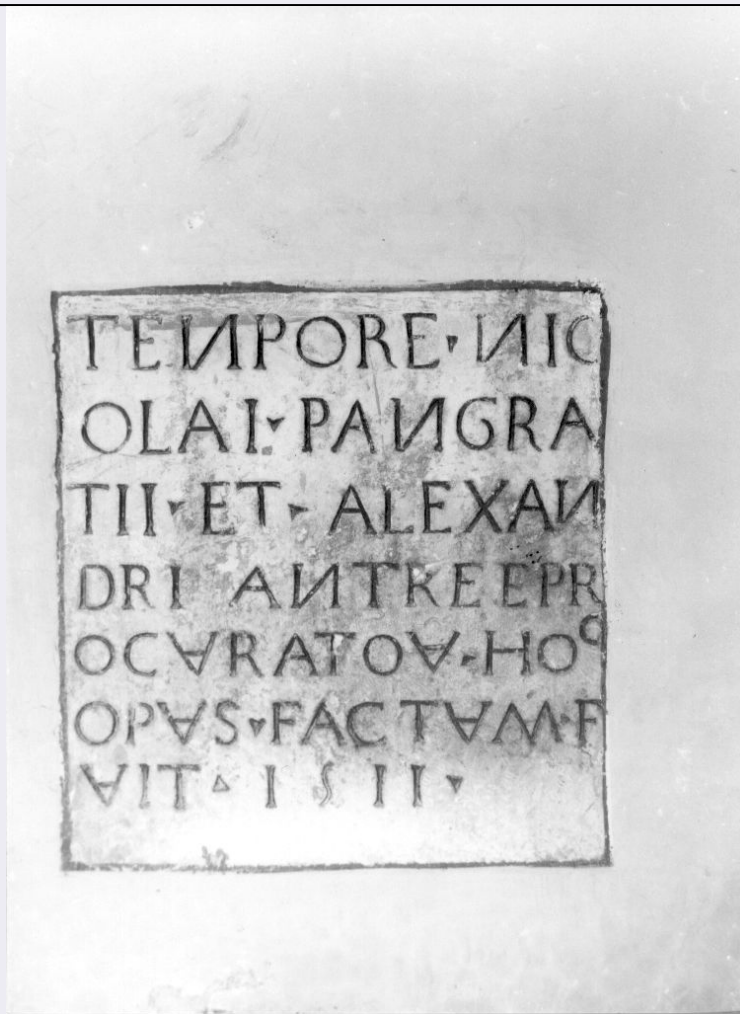 TENPORE · NIC
OLAI · PANGRA
TII · ET · ALEXAN
DRI ANTREE EPR
OCVRATOV · HOC
OPVS · FACTVM · F
VIT · 1511 ·